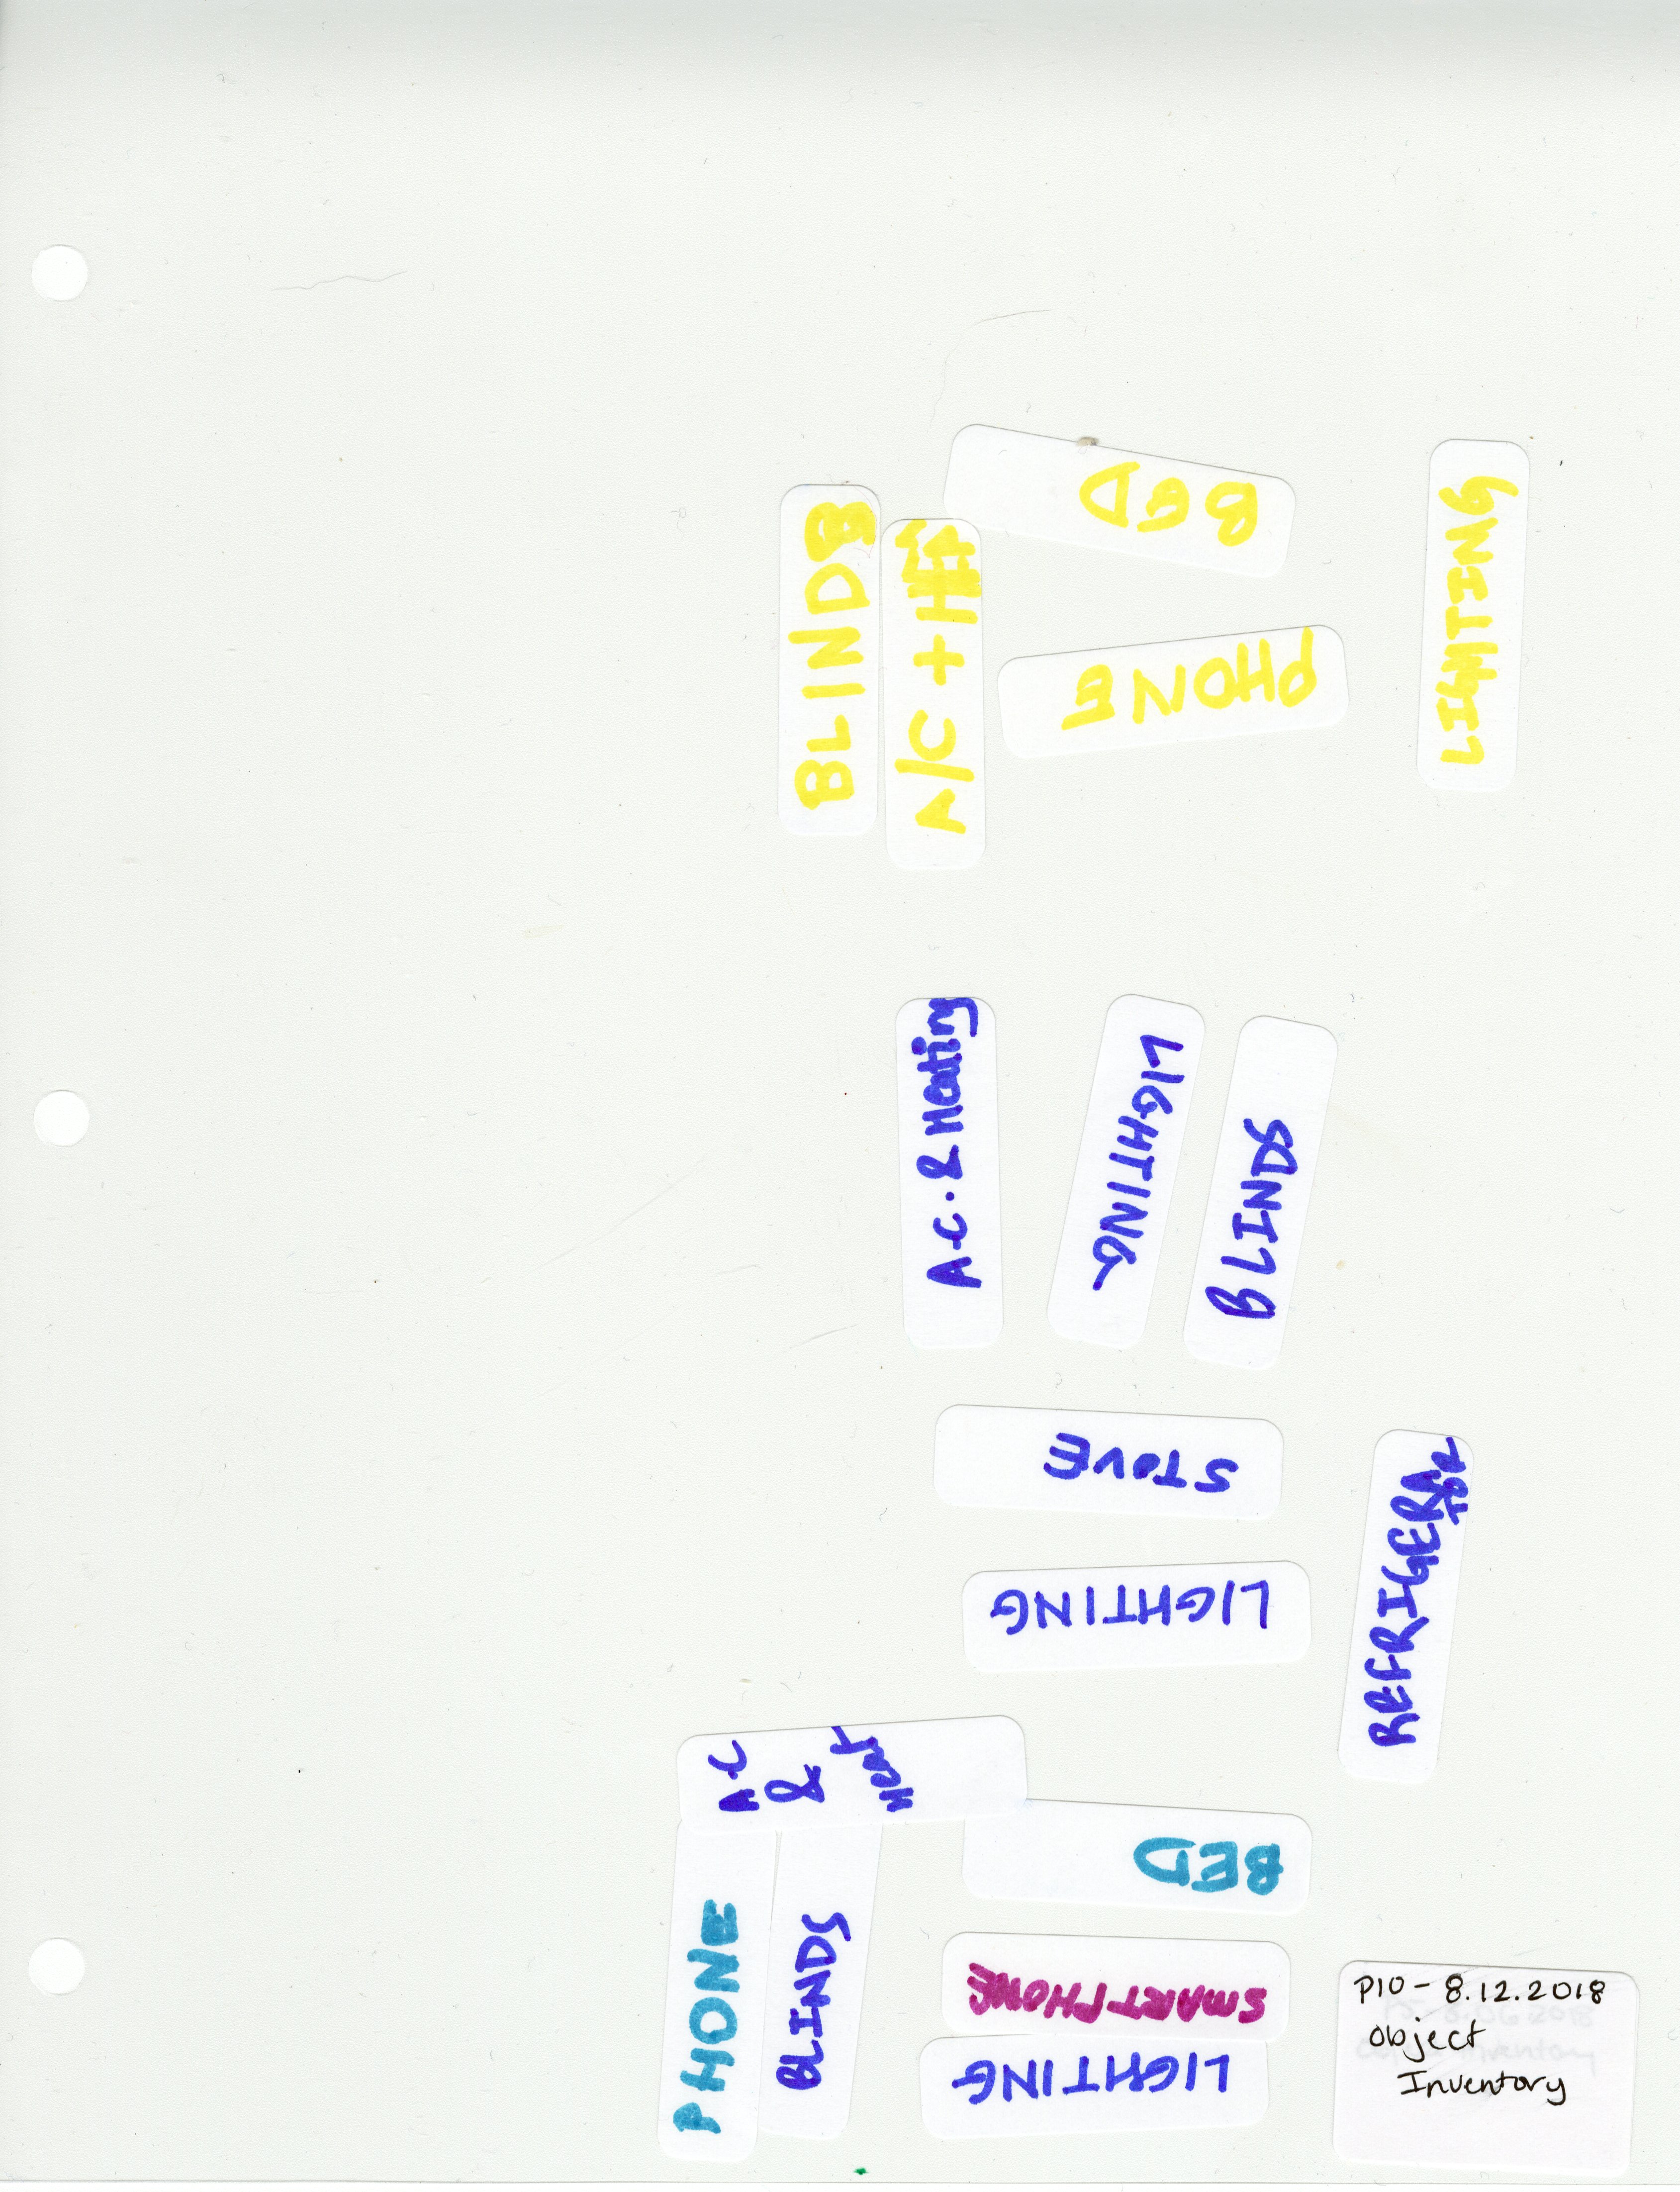 BED
LIGHTING
BLINDS
A/C + HEA
PHONE
A.C. & Heating
LIGHTING
BLINDS
STOVE
REFRIGERA
TOR
LIGHTING
A.C
&
Heat
BED
PHONE
BLINDS
SMARTPHONE
LIGHTING
P10 - 8.12.2018
Object
Inventory